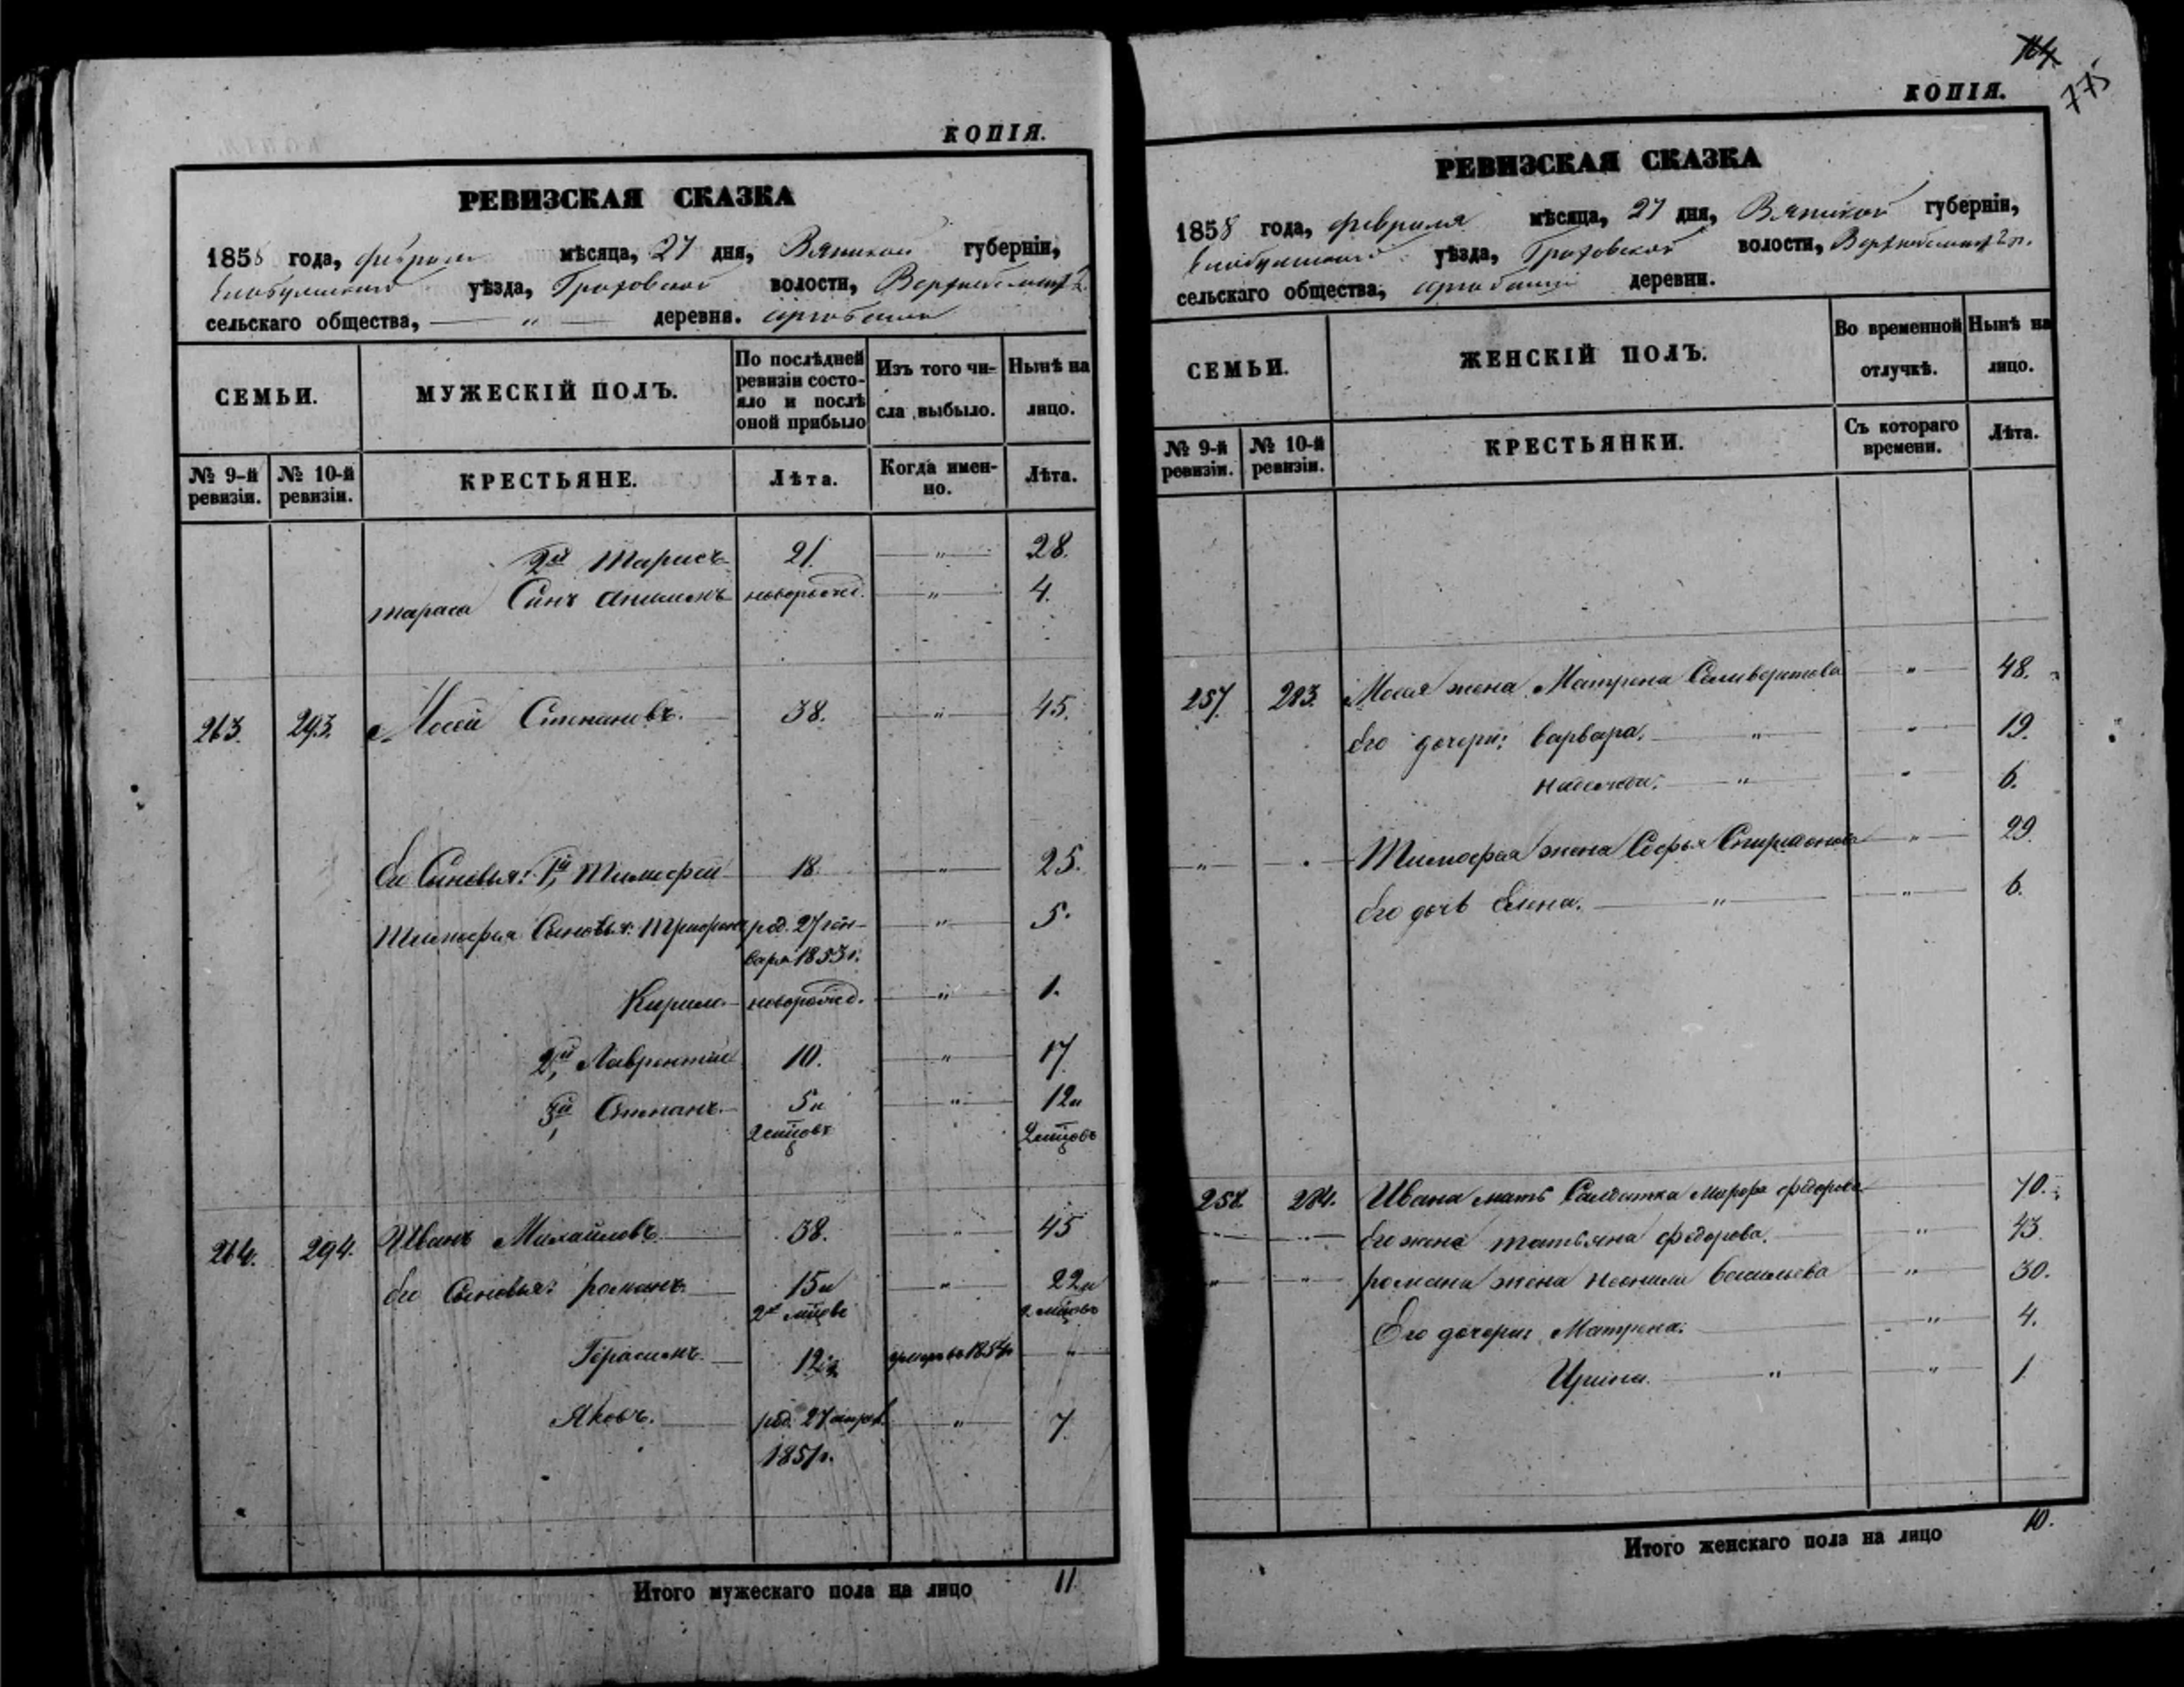 КОПІЯ.
РЕВИЗСКАЯ СКАЗКА
1858 года, февраля мѣсяца, 27 дня, Вятской губерніи,
Елабужскаго уѣзда, Граховской волости,
сельскаго общества, — " — деревни.
СЕМЬИ.
МУЖЕСКІЙ ПОЛЪ.
По послѣдней ревизіи состо-
яло и послѣ
оной прибыло
Изъ того чи-
сла выбыло.
Нынѣ на
лицо.
№ 9-й ревизіи.
№ 10-й ревизіи.
КРЕСТЬЯНЕ.
Лѣта.
Когда имен-
но.
Лѣта.
2й Тарасъ 21. — " — 28.
Тараса Сынъ новорожд. — " — 4.
263. 293. Мосей Степановъ. 38. — " — 45.
Его Сыновья: 1й Тимофей 18. — " — 25.
Тимофея Сыновья: Трифонъ род. 27 ген- — " — 5.
варя 1853 г.
Кирило новорожд. — " — 1.
2й Лаврентій 10. — " — 17
3й Степанъ. 5 и — " — 12 и
2 мцовъ 2 мцовъ
264. 294. Иванъ Михайловъ. 38. — " — 45
Его Сыновья: романъ. 15 и — " — 22 и
2х мцовъ 2 мцовъ
Герасимъ. 12 умеръ въ 1854 г — " —
Яковъ. род. 27 апрѣл. — " — 7.
1851 г.
Итого мужескаго пола на лицо 11
164
775
КОПІЯ.
РЕВИЗСКАЯ СКАЗКА
1858 года, февраля мѣсяца, 27 дня, Вятской губерніи,
Елабужскаго уѣзда, Граховской волости,
сельскаго общества, деревни.
СЕМЬИ.
ЖЕНСКІЙ ПОЛЪ.
Во временной
отлучкѣ.
Нынѣ на
лицо.
№ 9-й ревизіи.
№ 10-й ревизіи.
КРЕСТЬЯНКИ.
Съ котораго
времени.
Лѣта.
257. 283. Мосея жена Матрена Селиверстова — " — 48.
Его дочери: варвара. — " — 19.
надежда. — " — 6.
" — " — Тимофея жена Софья Спиридонова — " — 29
Его дочь Елена. — " — 6.
258. 284. Ивана мать Салдатка Марфа федорова 70.
Его жена татьяна федорова. — " — 43.
" — " — романа жена неонила васильева — " — 30.
Его дочери: Матрена. — " — 4.
Ирина. — " — 1.
Итого женскаго пола на лицо 10.